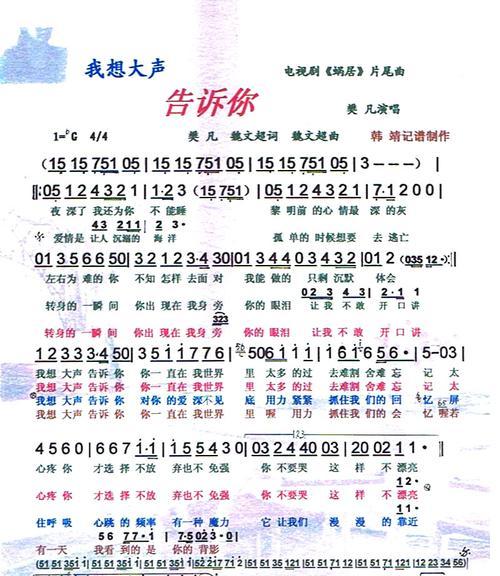 我想大声
电视剧《蜗居》片尾曲
告诉你
樊 凡演唱
1=ᵇG 4/4
樊 凡 魏文超词 魏文超曲 韩 靖记谱制作
(15 15 751 05 | 15 15 751 05 | 15 15 751 05 | 3 — — —)|
‖: 05 1 2 4 3 2 1 | 1·2 3 (15 751 05) | 05 1 2 4 3 2 1 | 7·1 2 0 0 |
夜 深了 我还为你 不 能睡 黎 明前 的心 情最 深 的灰
4 3 2 1 1 2·3 3
爱情是 让人 沉溺的 海 洋 孤 单的 时候想要 去 逃亡
0 1 3 5 6 6 5 0 | 3 2 1 2 3·4 3 0 | 0 1 3 4 4 0 3 4 3 2 | 0 1 2 (035 12·):‖
左右为 难的 你 不知 怎样 去面 对 我能 做的 只剩 沉默 体会
0 2 3 4 3 2·1 1
转身的 一瞬 间 你出 现在 我身 旁 你的 眼泪 让我 不敢 开 口 讲
323
转身的 一瞬 间 你出 现在 我身 旁 你的 眼泪 让我 不敢 开 口 讲
1 2 3 3 3·4 5 0 | 3 5 1 1 7 7 6 | 5 0 6 1 1·1 | 1 6 1 6 5 6· | 5 - 0 3 |
我想 大声 告诉 你 你一 直在 我世界 里 太多 的过 去难割 舍难 忘 记 太
我想 大声 告诉 你 你一 直在 我世界 里 太多 的过 去难割 舍难 忘 记 太
我想 大声 告诉 你 对你 的爱 深不见 底 用力 紧紧 抓住我 们的 回 忆 屏
我想 大声 告诉 你 你一 直在 我世界 里 喔 用力 抓住我 们的 会 忆 喔若
4 5 6 0 | 6 6 7 1·1 | 1 5 5 4 3 0 | 0 3 2 4 0 0 | 2 0 2 1 1· |
心疼 你 才选 择 不放 弃也 不 免强 你 不要 哭 这样 不 漂亮
心疼 你 才选 择 不放 弃也 不 免强 你 不要 哭 这样 不 漂亮
住呼 吸 心跳 的 频率 有一 种 魔力 它 让我们 漫漫 的 靠近
有一 天 我看 到的 是 你的 背影